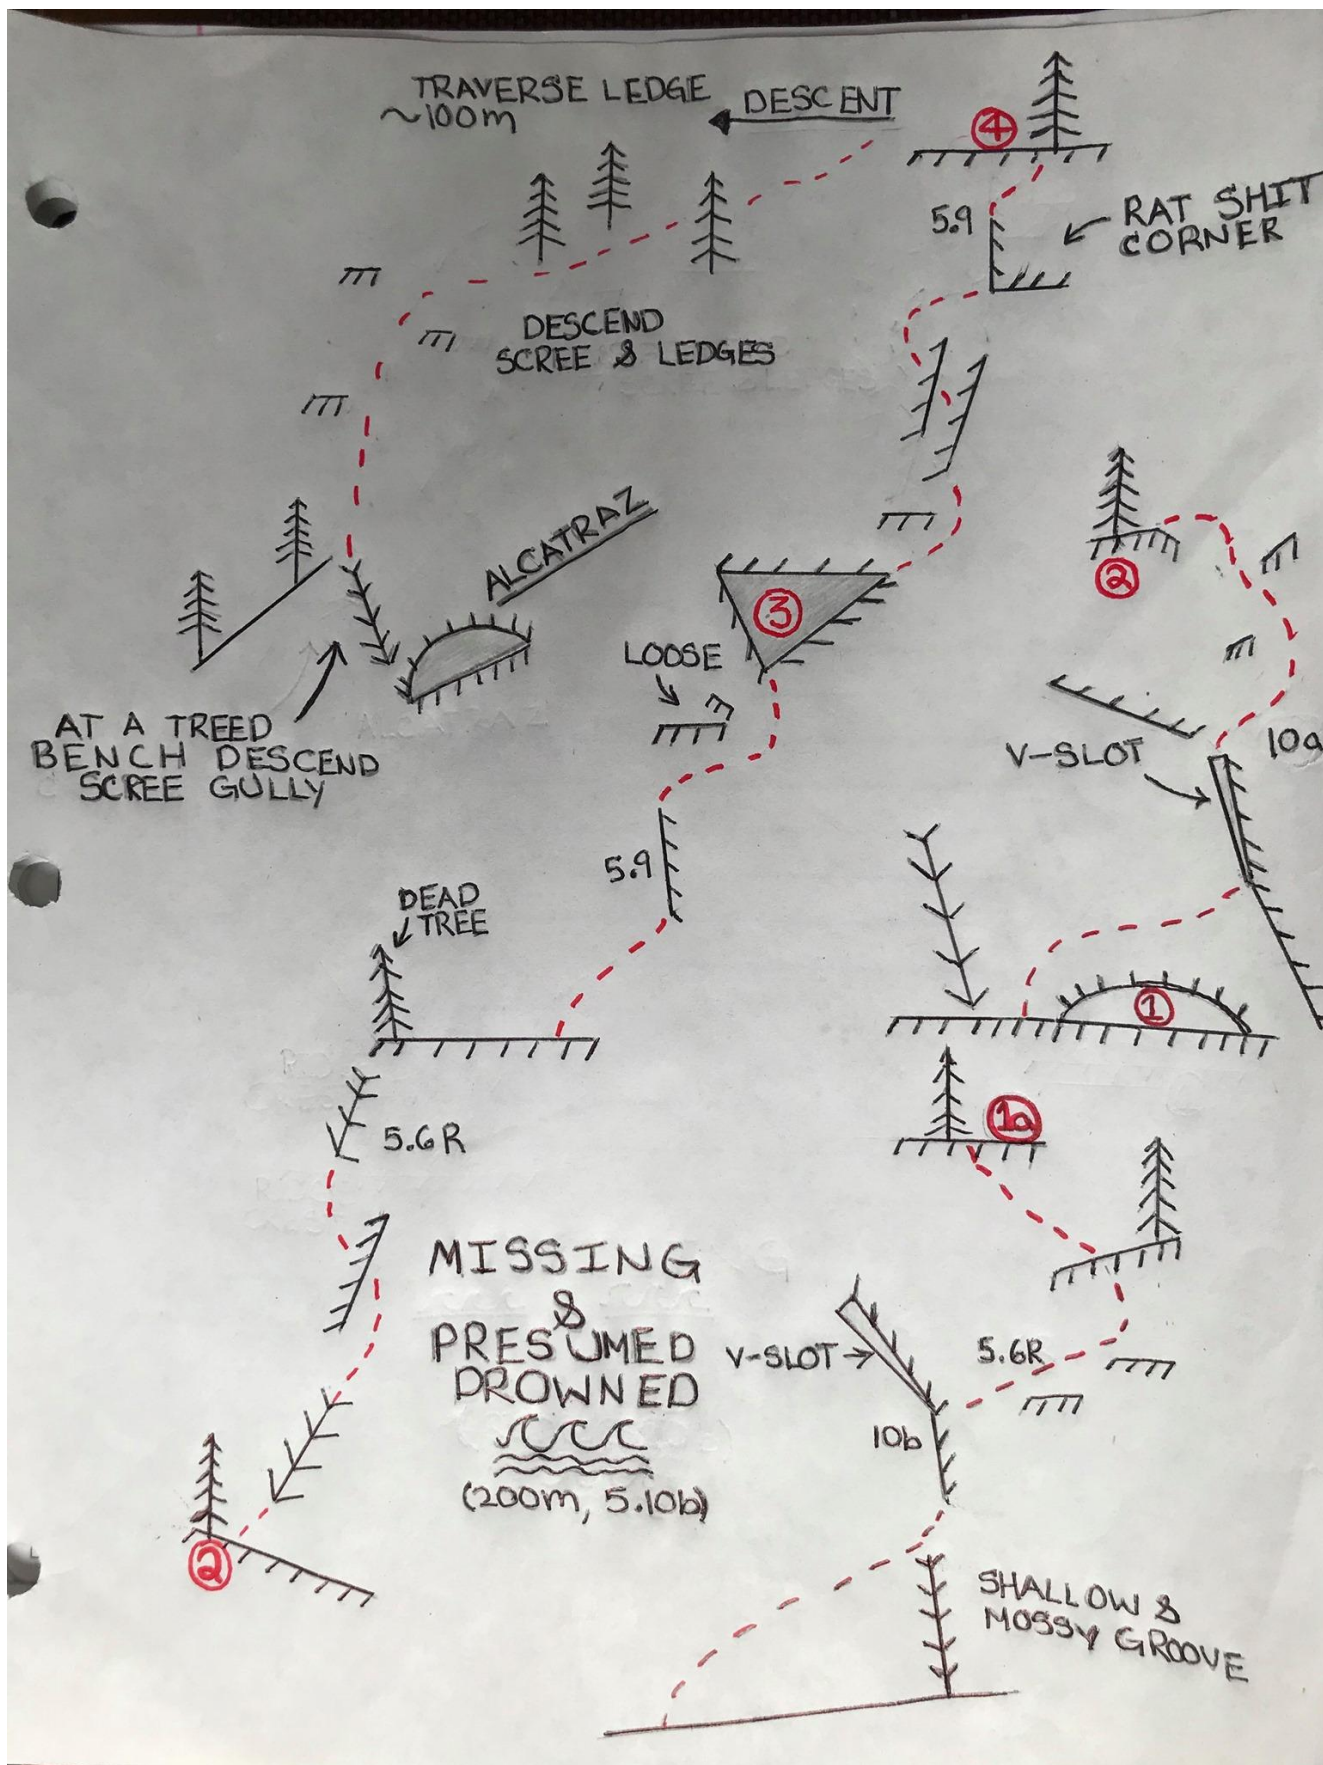 TRAVERSE LEDGE
~100m
DESCENT
4
5.9
RAT SHIT
CORNER
DESCEND
SCREE & LEDGES
ALCATRAZ
2
3
LOOSE
AT A TREED
BENCH DESCEND
SCREE GULLY
V-SLOT
10a
5.9
DEAD
TREE
1
1a
5.6R
MISSING
&
PRESUMED
DROWNED
(200m, 5.10b)
V-SLOT
5.6R
10b
2
SHALLOW &
MOSSY GROOVE